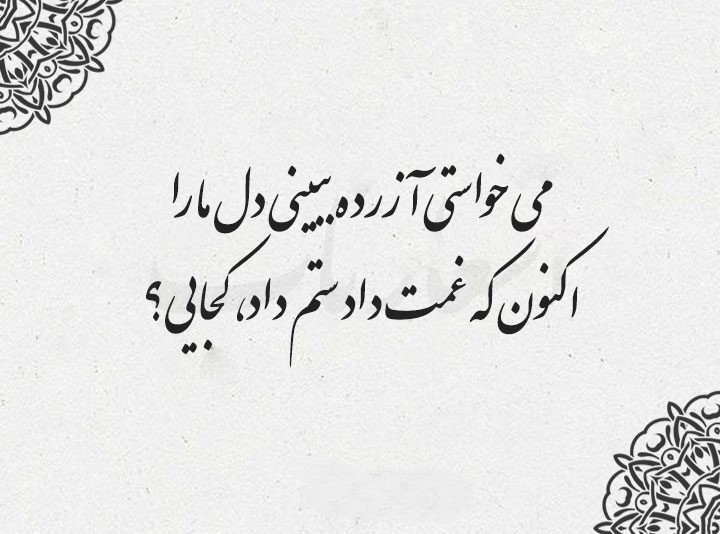 می خواستی آزرده ببینی دل ما را
اکنون که غمت داد ستم داد، کجایی؟